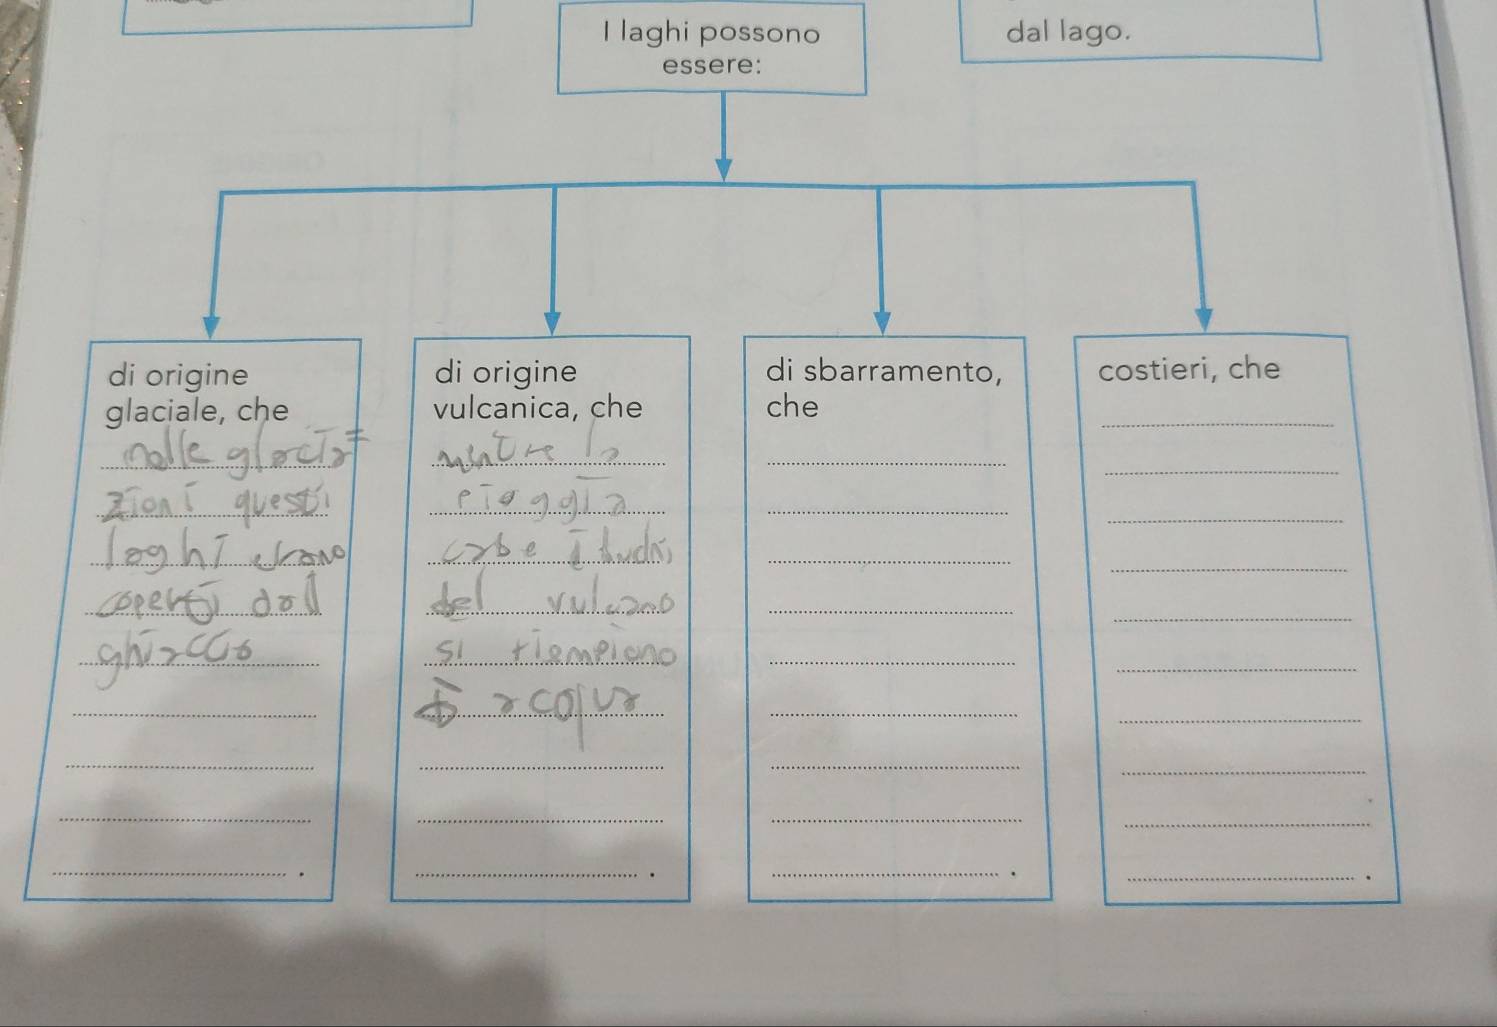 I laghi possono
essere:
dal lago.
di origine
glaciale, che
nalle glacia=
zioni questi
laghi erano
coperti dal
ghiaccio
di origine
vulcanica, che
mentre la
pioggia
cabe i
del vulcano
si riempiono
acqua
di sbarramento,
che
costieri, che